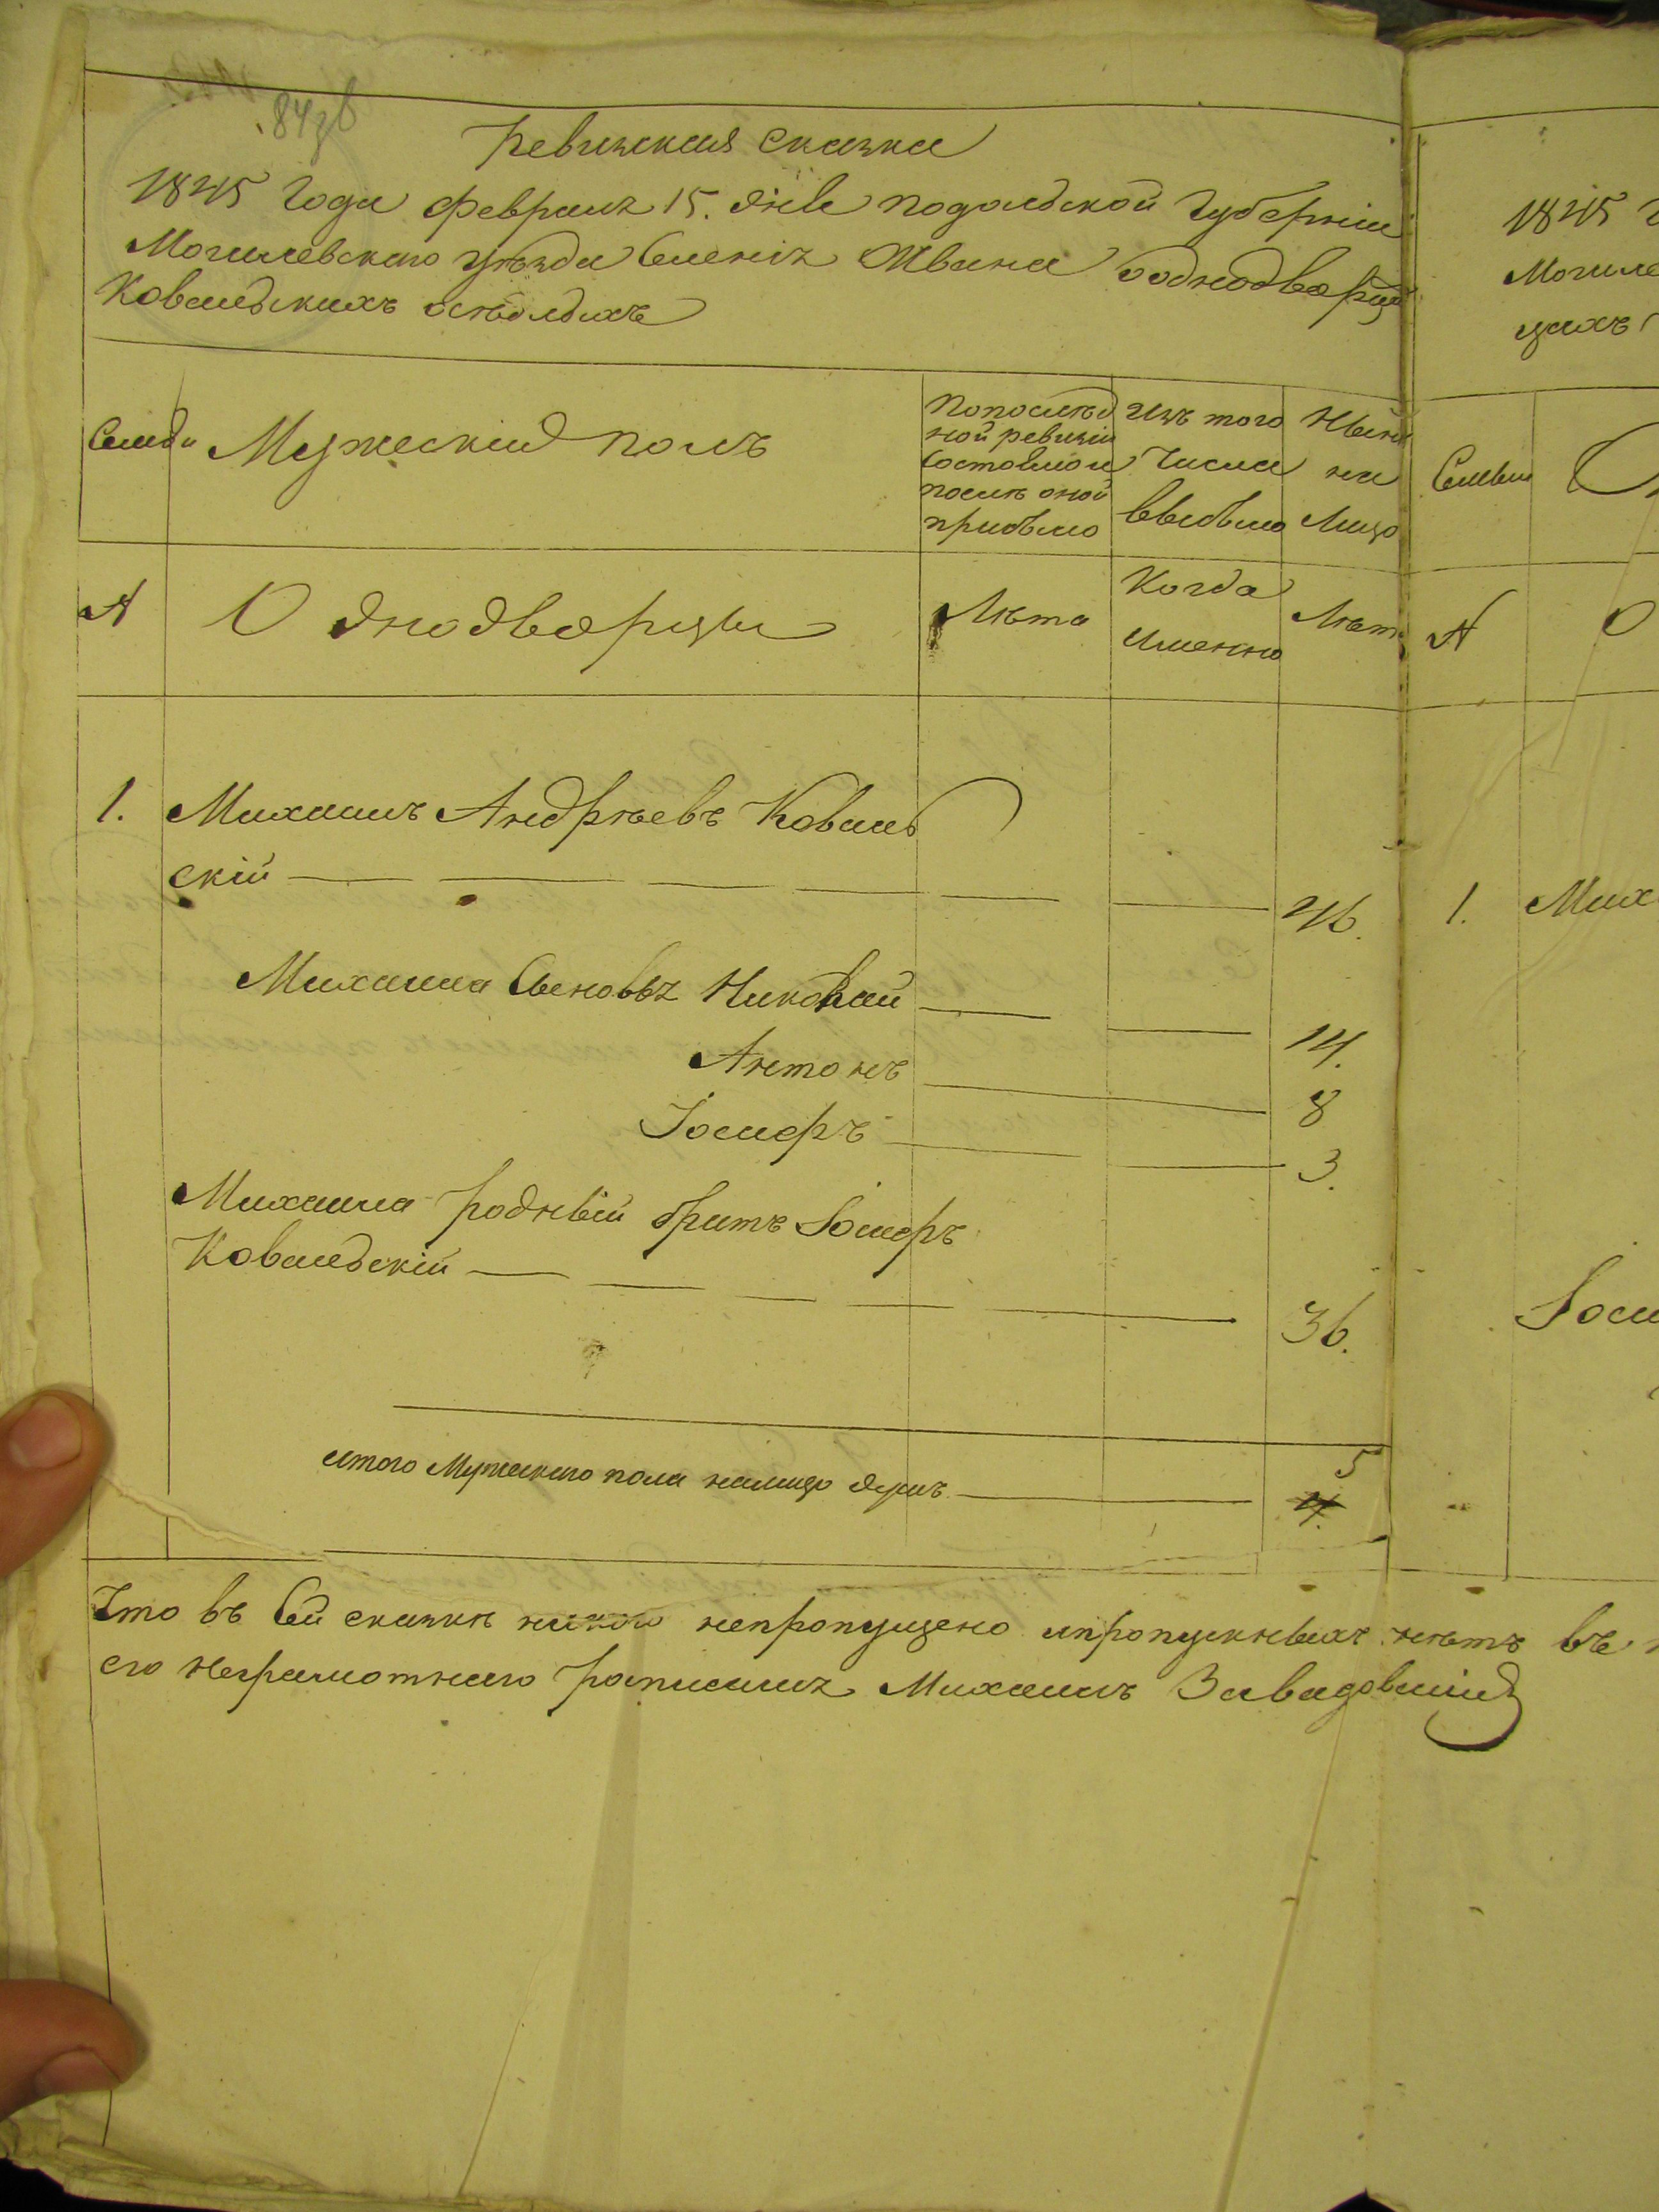 Ревизкая сказка
1845 года февраля 15. дня подольской Губерніи
Могилевскаго уѣзда Селенія Жвана ободнодворца
Ковальскихъ осѣдлыхъ
Семьи
Мужескій полъ
Попослѣд
ной ревизіи
состояло и
послѣ оной
прибыло
Изъ того
числа
выбыло
Нынѣ
на
Лицо
А
Однодворцы
Лѣта
Когда
именно
Лѣта
1. Михаилъ Андрѣевъ Коваль
скій 46.
Михаила Сыновья Николай 14.
Антонъ 8
Іосифъ 3.
Михаила родный братъ Іосифъ
Ковальскій 36.
5
итого Мужескаго пола налицо душъ 4.
Что въ Сей сказкѣ никого непропущено ипропускныхъ нѣтъ въ
его неграмотнаго росписался Михаилъ Завадовскій
1845
Могиле
цахъ
Семьи
А
О
1. Мих
Іоси